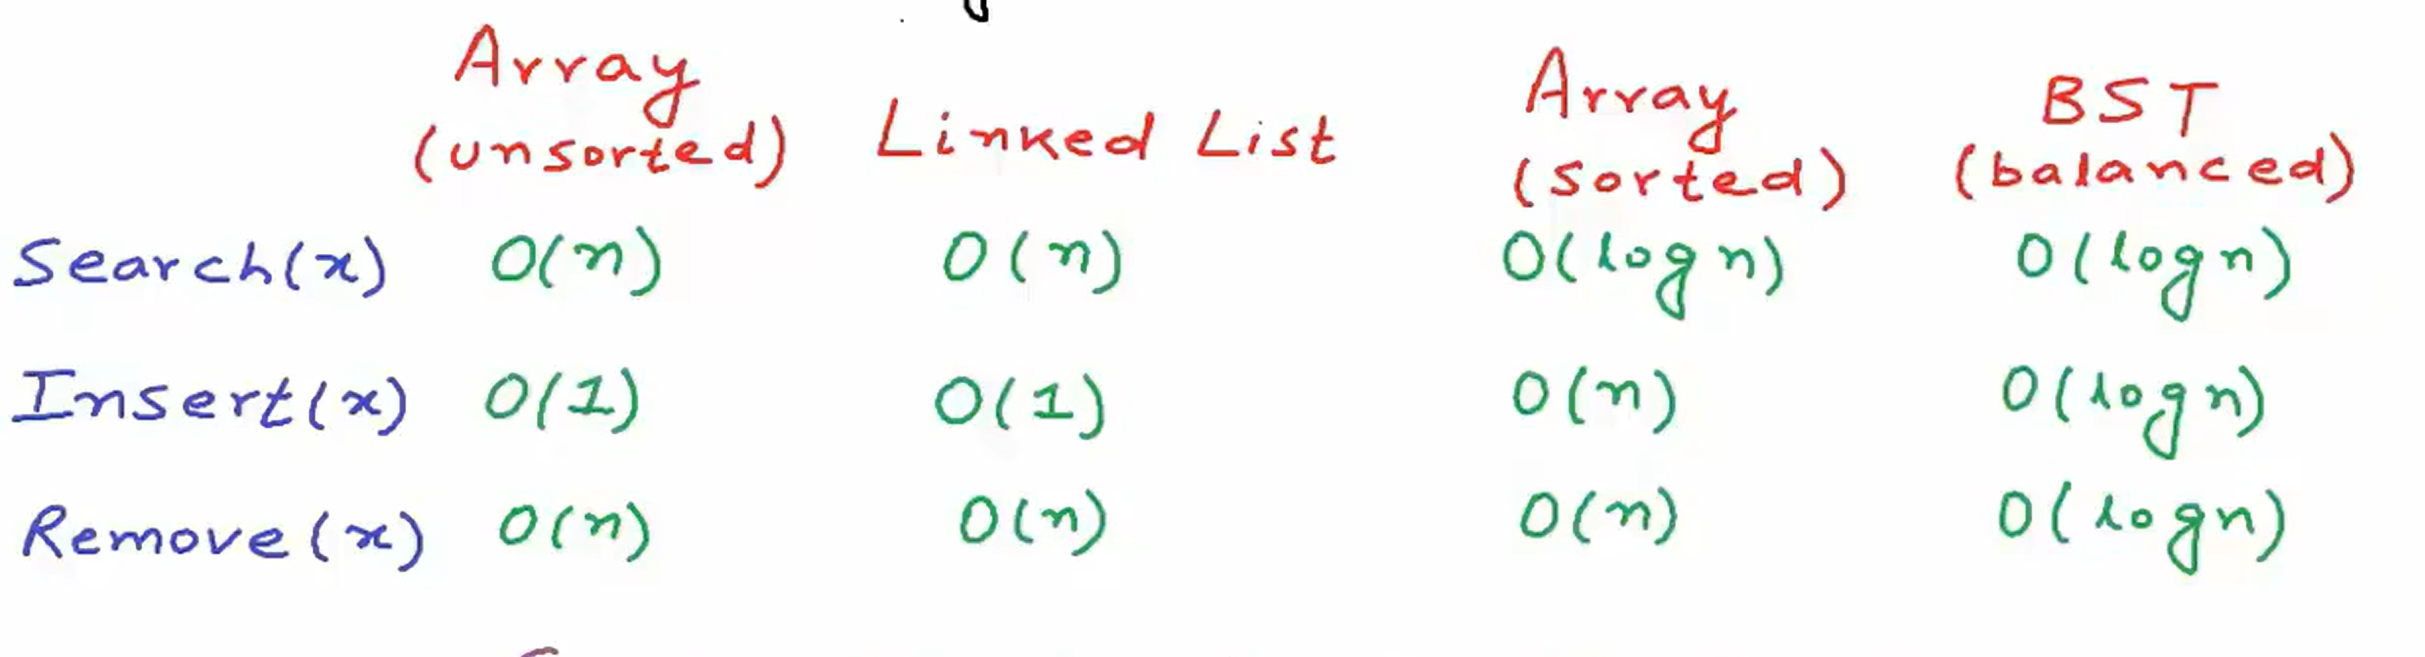 Array Linked List Array BST
(unsorted) (sorted) (balanced)
Search(x) O(n) O(n) O(log n) O(log n)
Insert(x) O(1) O(1) O(n) O(log n)
Remove(x) O(n) O(n) O(n) O(log n)